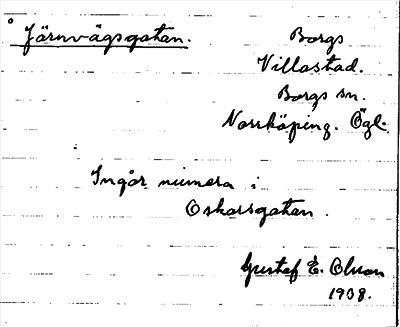 Järnvägsgatan.
Borgs
Villastad.
Borgs sn.
Norrköping. Ögl.
Ingår numera i
Oskarsgatan.
Gustaf E. Olsson
1938.